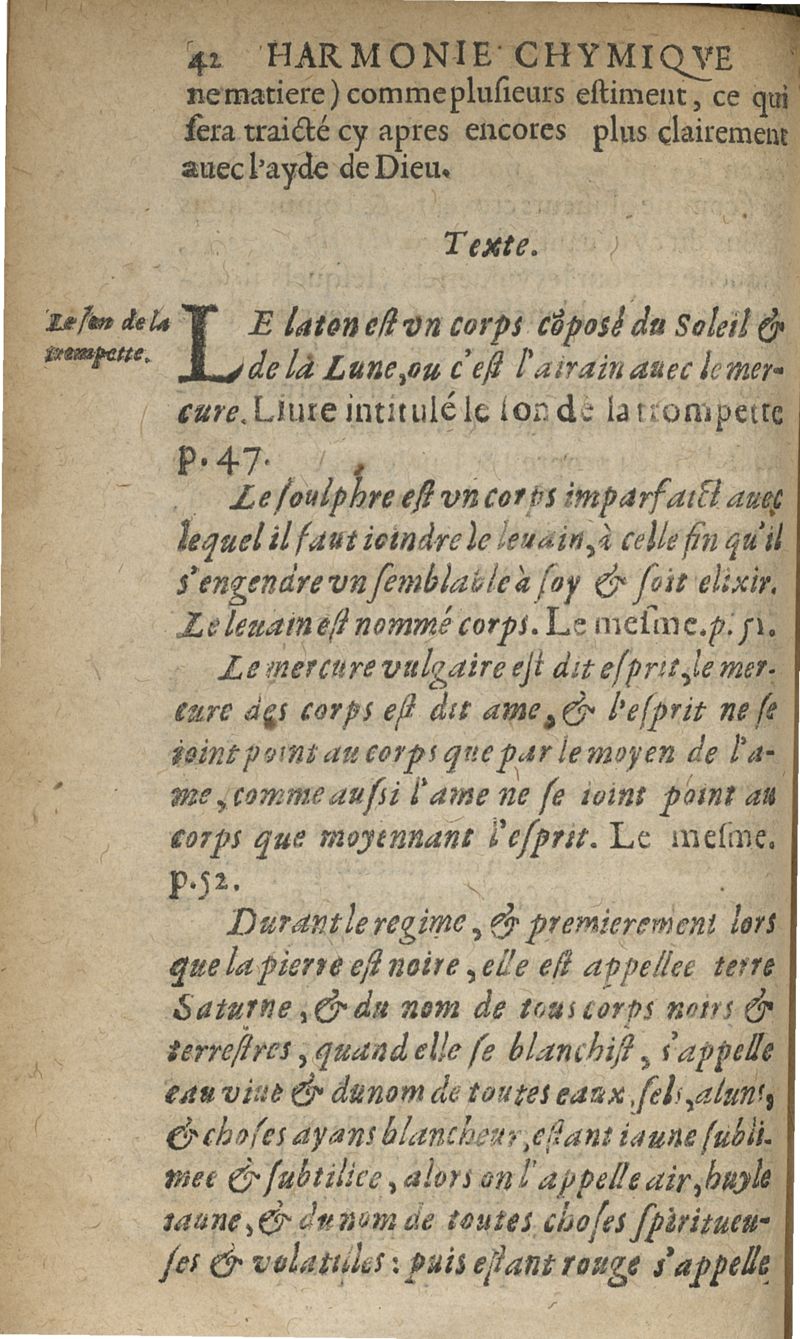 42 HARMONIE CHYMIQVE
ne matiere) comme plusieurs estiment, ce qui
sera traicté cy apres encores plus clairement
auec l'ayde de Dieu.
Texte.
Le son de la
trompette.
LE laton est vn corps cõposé du Soleil &
de la Lune, ou c'est l'airain auec le mer-
cure. Liure intitulé le son de la trompette
p. 47.
Le soulphre est vn corps imparfaict auec
lequel il faut ioindre le leuain, à celle fin qu'il
s'engendre vn semblable à soy & soit elixir.
Le leuain est nommé corps. Le mesme. p. 51.
Le mercure vulgaire est dit esprit, le mer-
cure des corps est dit ame, & l'esprit ne se
ioint point au corps que par le moyen de l'a-
me, comme aussi l'ame ne se ioint point au
corps que moyennant l'esprit. Le mesme.
p. 52.
Durant le regime, & premierement lors
que la pierre est noire, elle est appellee terre
Saturne, & du nom de tous corps noirs &
terrestres, quand elle se blanchist, s'appelle
eau viue & du nom de toutes eaux, sels, aluns,
& choses ayans blancheur, estant iaune subli-
mee & subtiliee, alors on l'appelle air, huyle
iaune, & du nom de toutes choses spiritueu-
ses & volatiles : puis estant rouge s'appelle